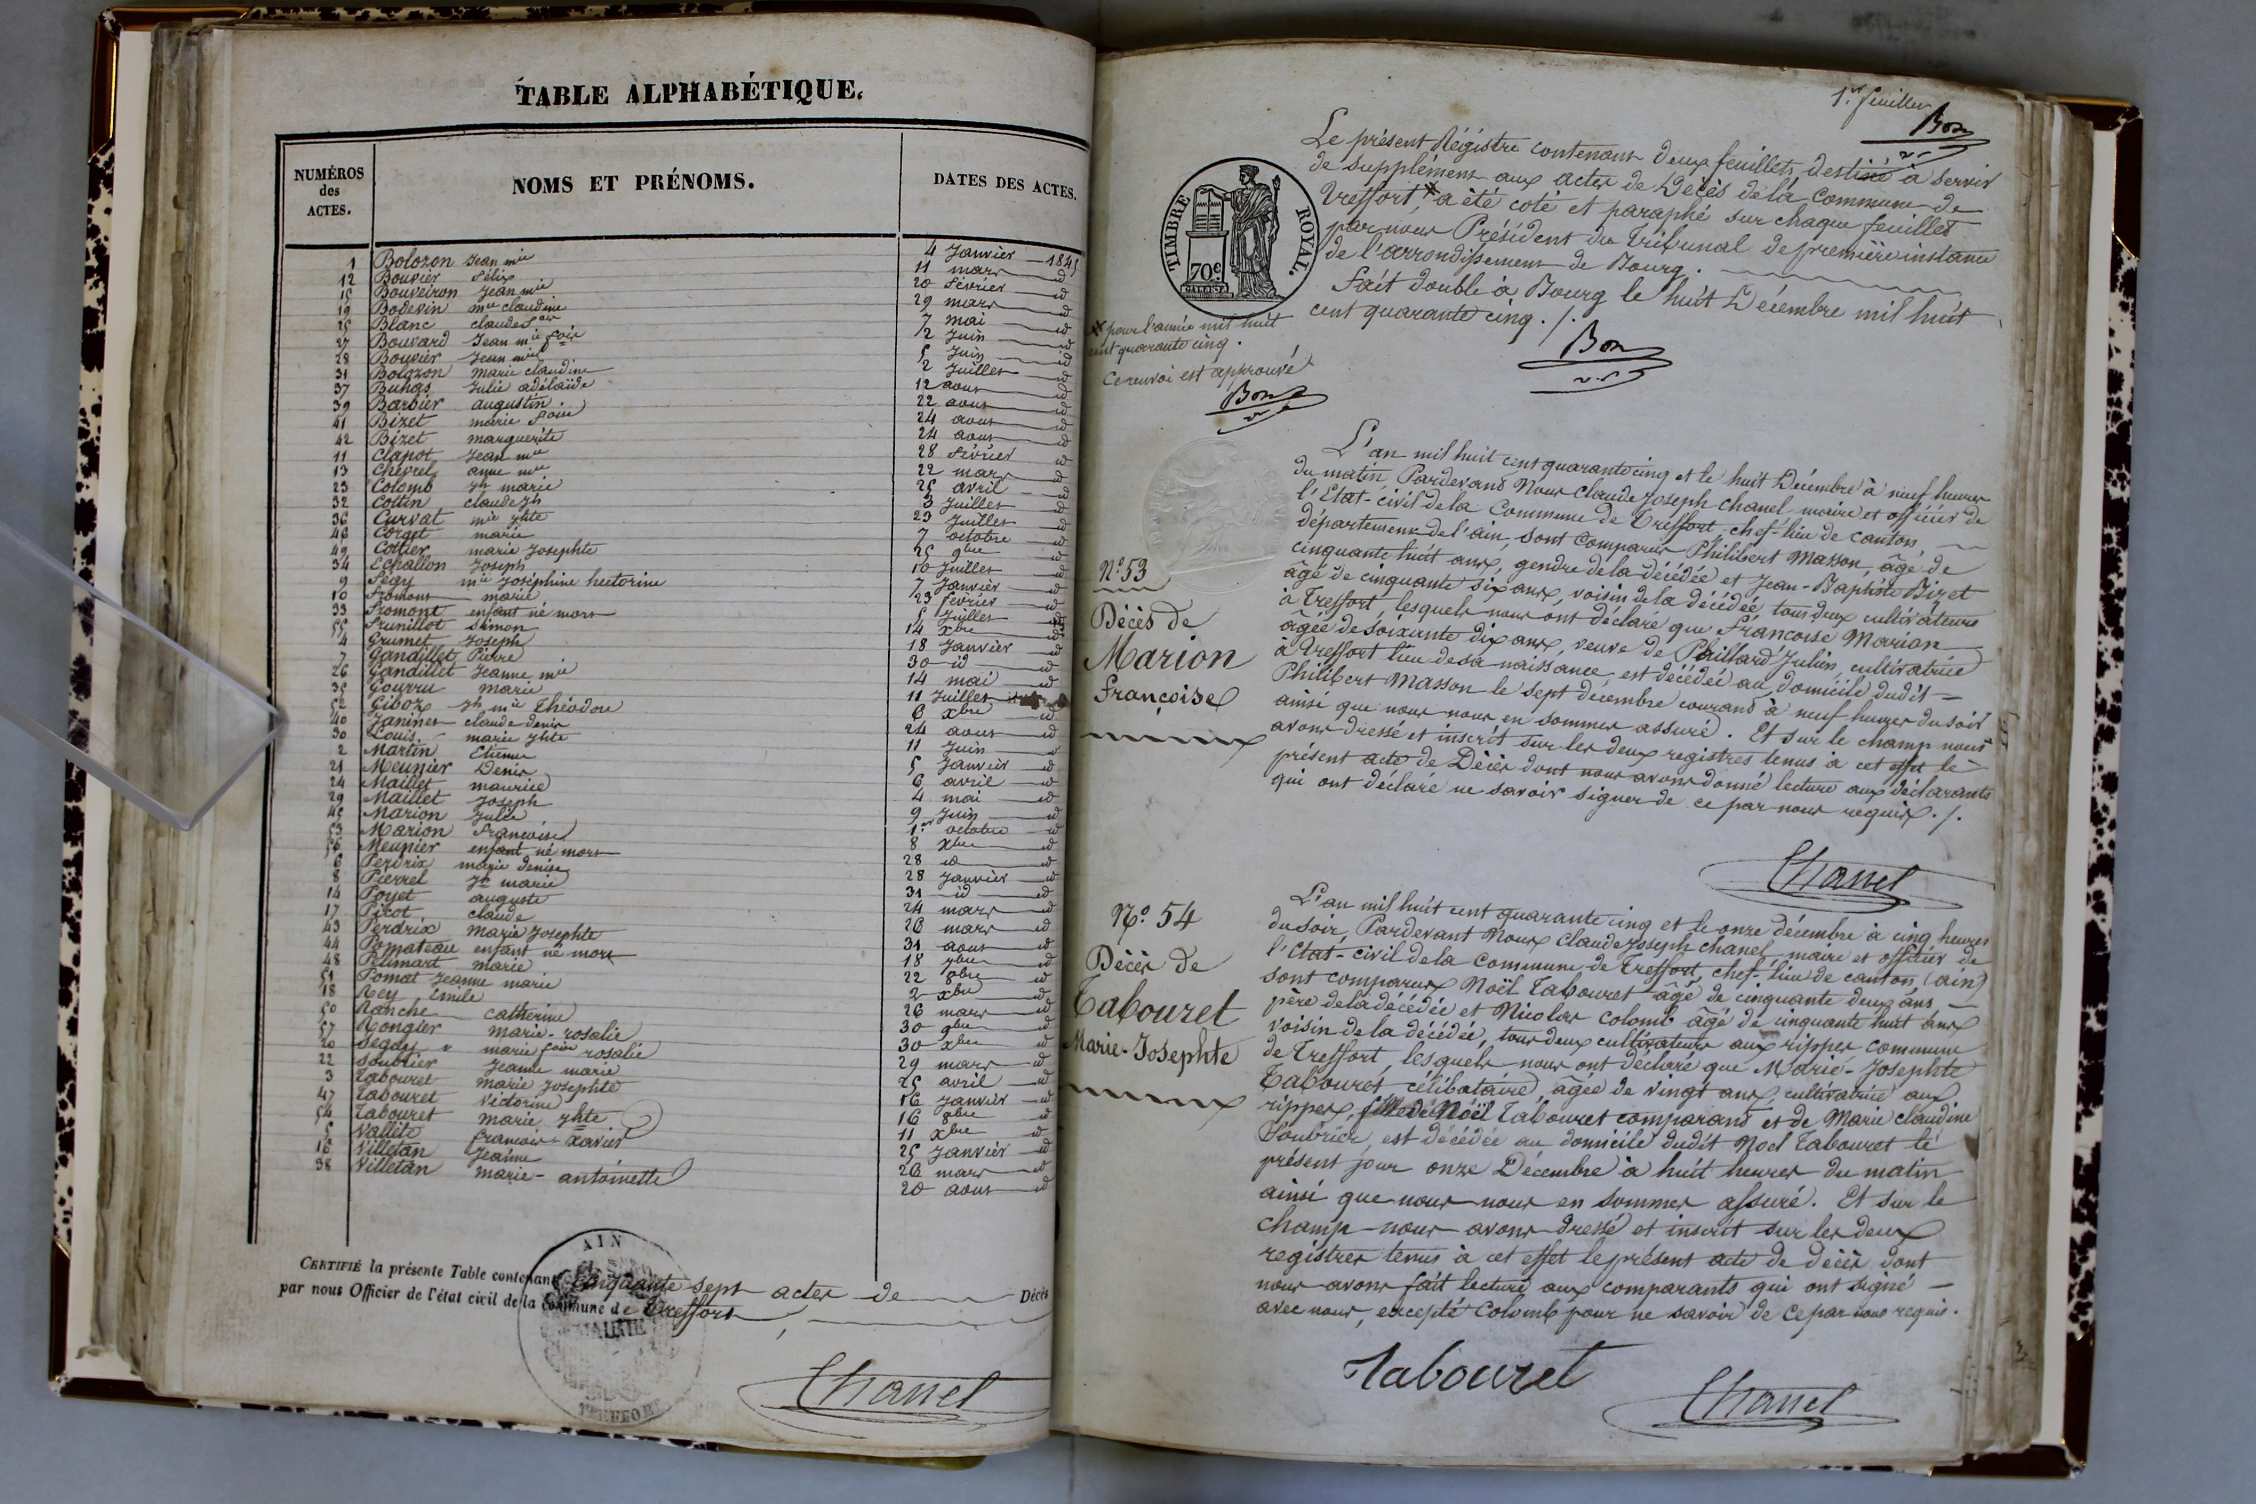 TABLE ALPHABÉTIQUE.
NUMÉROS des ACTES. NOMS ET PRÉNOMS. DATES DES ACTES.
1 Bolozon Jean mie 4 Janvier 1845
12 Bouvier Félix 11 mars id
15 Bouveiron Jean mie 20 Février id
19 Bodevin mie claudine 29 mars id
25 Blanc claude 7 mai id
27 Bouvard Jean mie 2 Juin id
28 Bouvier Jean mie 5 Juin id
31 Bolozon marie claudine 2 Juillet id
37 Buhas Julie adélaïde 12 aout id
39 Barbier augustin 22 aout id
41 Bizet marie 24 aout id
42 Bizet marguerite 24 aout id
11 Clapot Jean mie 28 Février id
13 Chevrel anne mie 22 mars id
23 Colomb Jh marie 25 avril id
32 Cottin claude Jh 3 Juillet id
36 Curvat mie jhte 23 Juillet id
46 Corget marie 7 octobre id
49 Cottier marie Josephte 25 9bre id
34 Echallon Joseph 10 Juillet id
9 Segy mie Joséphine 7 Janvier id
10 Fromont marie 23 février id
33 Fromont enfant né mort 5 Juillet id
55 Frunillot Simon 14 Xbre id
4 Grumet Joseph 18 Janvier id
7 Gandillet Pierre 30 id id
26 Gandillet Jeanne mie 14 mai id
35 Gourru marie 11 Juillet
52 Giboz Jh mie Théodore 6 Xbre id
40 Janinet claude denis 24 aout id
30 Louis marie jhte 11 Juin id
2 Martin Etienne 5 Janvier id
21 Meunier Denis 6 avril id
24 Maillet maurice 4 mai id
29 Maillet Joseph 9 Juin id
45 Marion Julie 1er octobre id
53 Marion Françoise 8 Xbre id
56 Meunier enfant né mort 28 id id
6 Perdrix marie denise 28 Janvier id
8 Pierrel Jh marie 31 id id
14 Poyet auguste 24 mars id
17 Picot claude 26 mars id
43 Perdrix marie Josephte 31 aout id
44 Pomateau enfant né mort 18 7bre id
48 Petimart marie 22 8bre id
51 Pomat Jeanne marie 2 Xbre id
18 Rey Emile 26 mars id
50 Ranche catherine 30 9bre id
57 Rongier marie-rosalie 30 Xbre id
20 Segay marie rosalie 29 mars id
22 Soubrier Jeanne marie 25 avril id
3 Tabouret marie Josephte 16 Janvier id
47 Tabouret victorine 16 8bre id
54 Tabouret marie jhte 11 Xbre id
5 Vallète françois-Xavier 25 Janvier id
16 Villetan Jeanne 26 mars id
38 Villetan marie-antoinette 20 aout id
CERTIFIÉ la présente Table contenant cinquante sept actes de Décès
par nous Officier de l'état civil de la commune de Treffort
AIN
MAIRIE
Chanel
1er feuillet
Bon
Le présent Régistre contenant deux feuillets, destiné à servir
de supplément aux actes de Décès de la Commune de
Treffort, a été coté et paraphé sur chaque feuillet
par nous Président du Tribunal de première instance
de l'arrondissement de Bourg.
Fait double à Bourg le huit Décembre mil huit
cent quarante cinq ./.
TIMBRE ROYAL.
70c
pour l'année mil huit
cent quarante cinq.
Ce renvoi est approuvé
Bon
Bon
N° 53
Décès de
Marion
Françoise
L'an mil huit cent quarante cinq et le huit Décembre à neuf heures
du matin Pardevant Nous Claude Joseph Chanel maire et officier de
l'Etat-civil de la Commune de Treffort, chef-lieu de canton,
département de l'ain, sont Comparus Philibert Masson, âgé de
cinquante huit ans, gendre de la décédée et Jean-Baptiste Bizet
âgé de cinquante six ans, voisin de la décédée tous deux cultivateurs
à Treffort, lesquels nous ont déclaré que Françoise Marion
âgée de soixante dix ans, veuve de Paillard Julien, cultivatrice
à Treffort lieu de sa naissance, est décédée au domicile dudit
Philibert Masson le sept décembre courant à neuf heures du soir
ainsi que nous nous en sommes assuré. Et sur le champ nous
avons dressé et inscrit sur les deux registres tenus à cet effet le
présent acte de Décès dont nous avons donné lecture aux déclarants
qui ont déclaré ne savoir signer de ce par nous requis ./.
Chanel
N° 54
Décès de
Tabouret
Marie-Josephte
L'an mil huit cent quarante cinq et le onze décembre à cinq heures
du soir, Pardevant Nous Claude Joseph Chanel, maire et officier de
l'Etat-civil de la Commune de Treffort, chef-lieu de canton (ain)
sont comparus Noël Tabouret âgé de cinquante deux ans
père de la décédée et Nicolas Colomb âgé de cinquante huit ans
voisin de la décédée, tous deux cultivateurs aux rippes commune
de Treffort, lesquels nous ont déclaré que Marie-Josephte
Tabouret célibataire, âgée de vingt ans, cultivatrice aux
rippes, fille de Noël Tabouret comparant et de Marie Claudine
Soubrier, est décédée au domicile dudit Noel Tabouret le
présent jour onze Décembre à huit heures du matin
ainsi que nous nous en sommes assuré. Et sur le
champ nous avons dressé et inscrit sur les deux
registres tenus à cet effet le présent acte de décès dont
nous avons fait lecture aux comparants qui ont signé
avec nous, excepté Colomb pour ne savoir de ce par nous requis.
Tabouret
Chanel